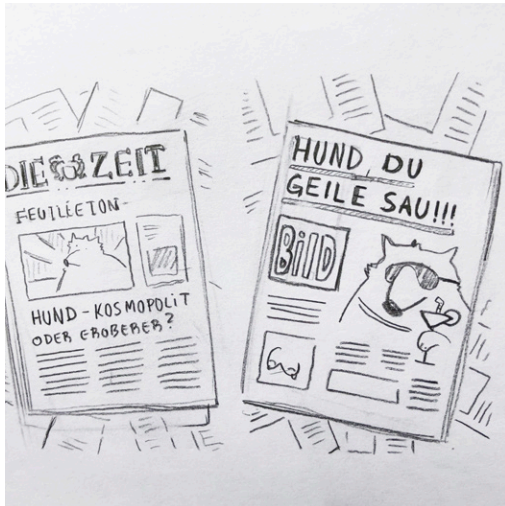 DIE ZEIT
FEUILLETON-
HUND - KOSMOPOLIT
ODER EROBERER?
HUND, DU
GEILE SAU!!!
BilD